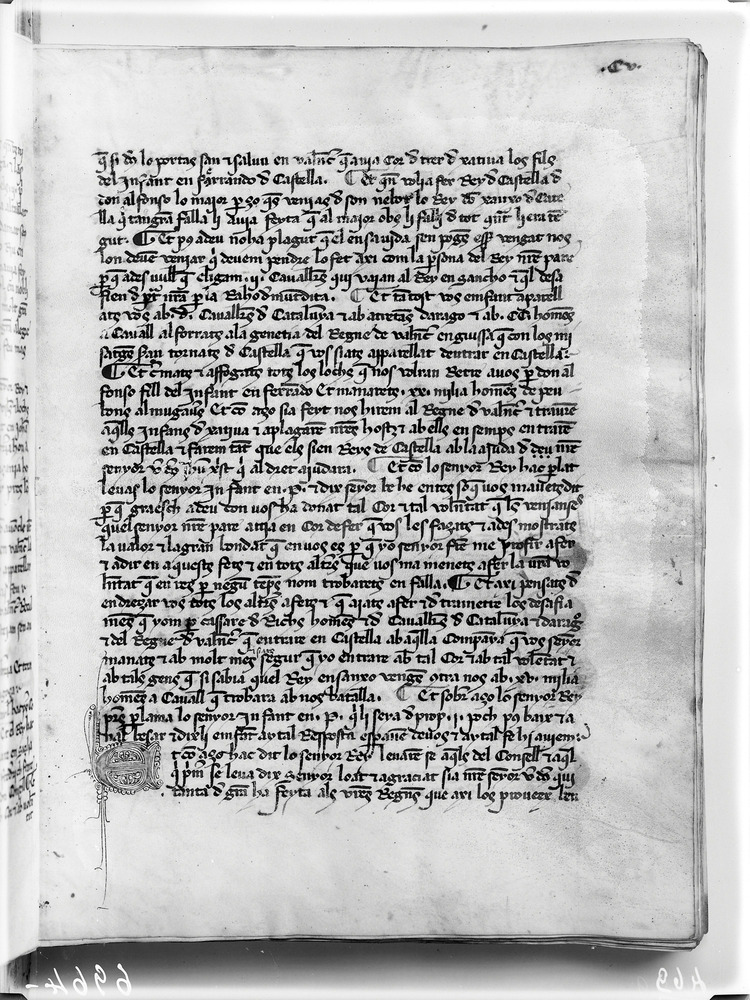 .Cv.
q̄ si dō lo portas san ⁊ saluu en valn̄c q̄ auia Cor d̄ trer d̄ xatiua los fils
del Infant en farrando d̄ Castella. ¶ Et qn̄ volia fer Rey d̄ Castella d̄
don alfonso lo maior
gut. ¶ Et pus a deu no ha plagut q̄ el en sa vida sen pogues esser vengat nos
lon deuē veniar q̄ deuem pendre lo fet axi com la p̄sona del Rey nr̄e pare
p̄ q̄ ades vull q̄ eligam .ij. Cauallers qui vajan al Rey en Sancho ⁊ ql̄ desa
fien d̄ part nr̄a ¶ Et tātost vos emfant aparell
ats vos ab .D. Cauallers d̄ Cataluya ⁊ ab atretāts darago ⁊ ab homēs
a Cauall alforrats a la genetia del Regne de valn̄c en guissa q̄ con los mi
satges serā tornats d̄ Castella q̄ vos siats apparellat dentrar en Castella:
¶ Et cremats ⁊ affogats tots los lochs q̄ nos volran Retre a uos p̄ don al
fonso fill del Infant en ferrādo Et manarets .xx. milia homēs de peu
tots almugauers Et cō aço sia feyt nos hirem al Regne d̄ valn̄c ⁊ traurē
aqlls Infans d̄ xatiua ⁊ aplagarē nr̄es hosts ⁊ ab ells en semps en trarē
en Castella ⁊ farem tāt que els sien Reys de Castella ab la ajuda d̄ deu nr̄e
senyor q̄ al dret ajudara. ¶ Et cō lo senyor Rey hac p̄lat
leuas lo senyor Infant en .P. ⁊ dix seyor be he entes so q̄ uos mauets dit
p̄ q̄ graesch a deu don vos ha donat tal Cor ⁊ tal volūtat q̄ les venjanses
quel senyor nr̄e pare auia en Cor de fer q̄ vos les façats ⁊ ades mostrats
la valor ⁊ la gran bondat q̄ en uos es p̄ q̄ yo senyor frē me profir a fer
⁊ a dir en aquests fets ⁊ en tots altres que uos ma manets a fer la vr̄a vo
lūtat q̄ en res p̄ negū temps nom trobarets en falla. ¶ Et axi pensats d̄
endreçar vos tots los altres afets ⁊ q̄ aiats a fer ⁊ d̄ trametre los desafia
mēs q̄ yom p̄cassare d̄ Richs homēs ⁊ d̄ Cauallers d̄ Cataluya ⁊ darago
⁊ del Regne d̄ valn̄c q̄ entrare en Castella ab aqlla Companya q̄ vos seyor
manats ⁊ ab molt mes segur q̄ yo entrare ab tal Cor ⁊ ab tal voletat ⁊
ab tals gens q̄ si sabia quel Rey en sanxo vengs ꝯtra nos ab .xv. milia
homēs a Cauall q̄ trobara ab nos batalla. ¶ Et sobre aço lo senyor Rey
pres p̄ la ma lo senyor Infant en .P. q̄ li sera d̄ prop .ij. poch pus baix ⁊ a
nal besar ⁊ dix li emfant aytal Resposta esperauē de uos ⁊ aytal fe hi auiem:
Et cō aço hac dit lo senyor Rey leuarē se aqlls del Consell ⁊ aql
q̄ prim̄ se leua dix senyor loat ⁊ agraciat sia nr̄e seyor v̄ dō qui
tanta d̄ gr̄a ha feyta als vr̄es Regnes que axi los proueex ben
6964-
469